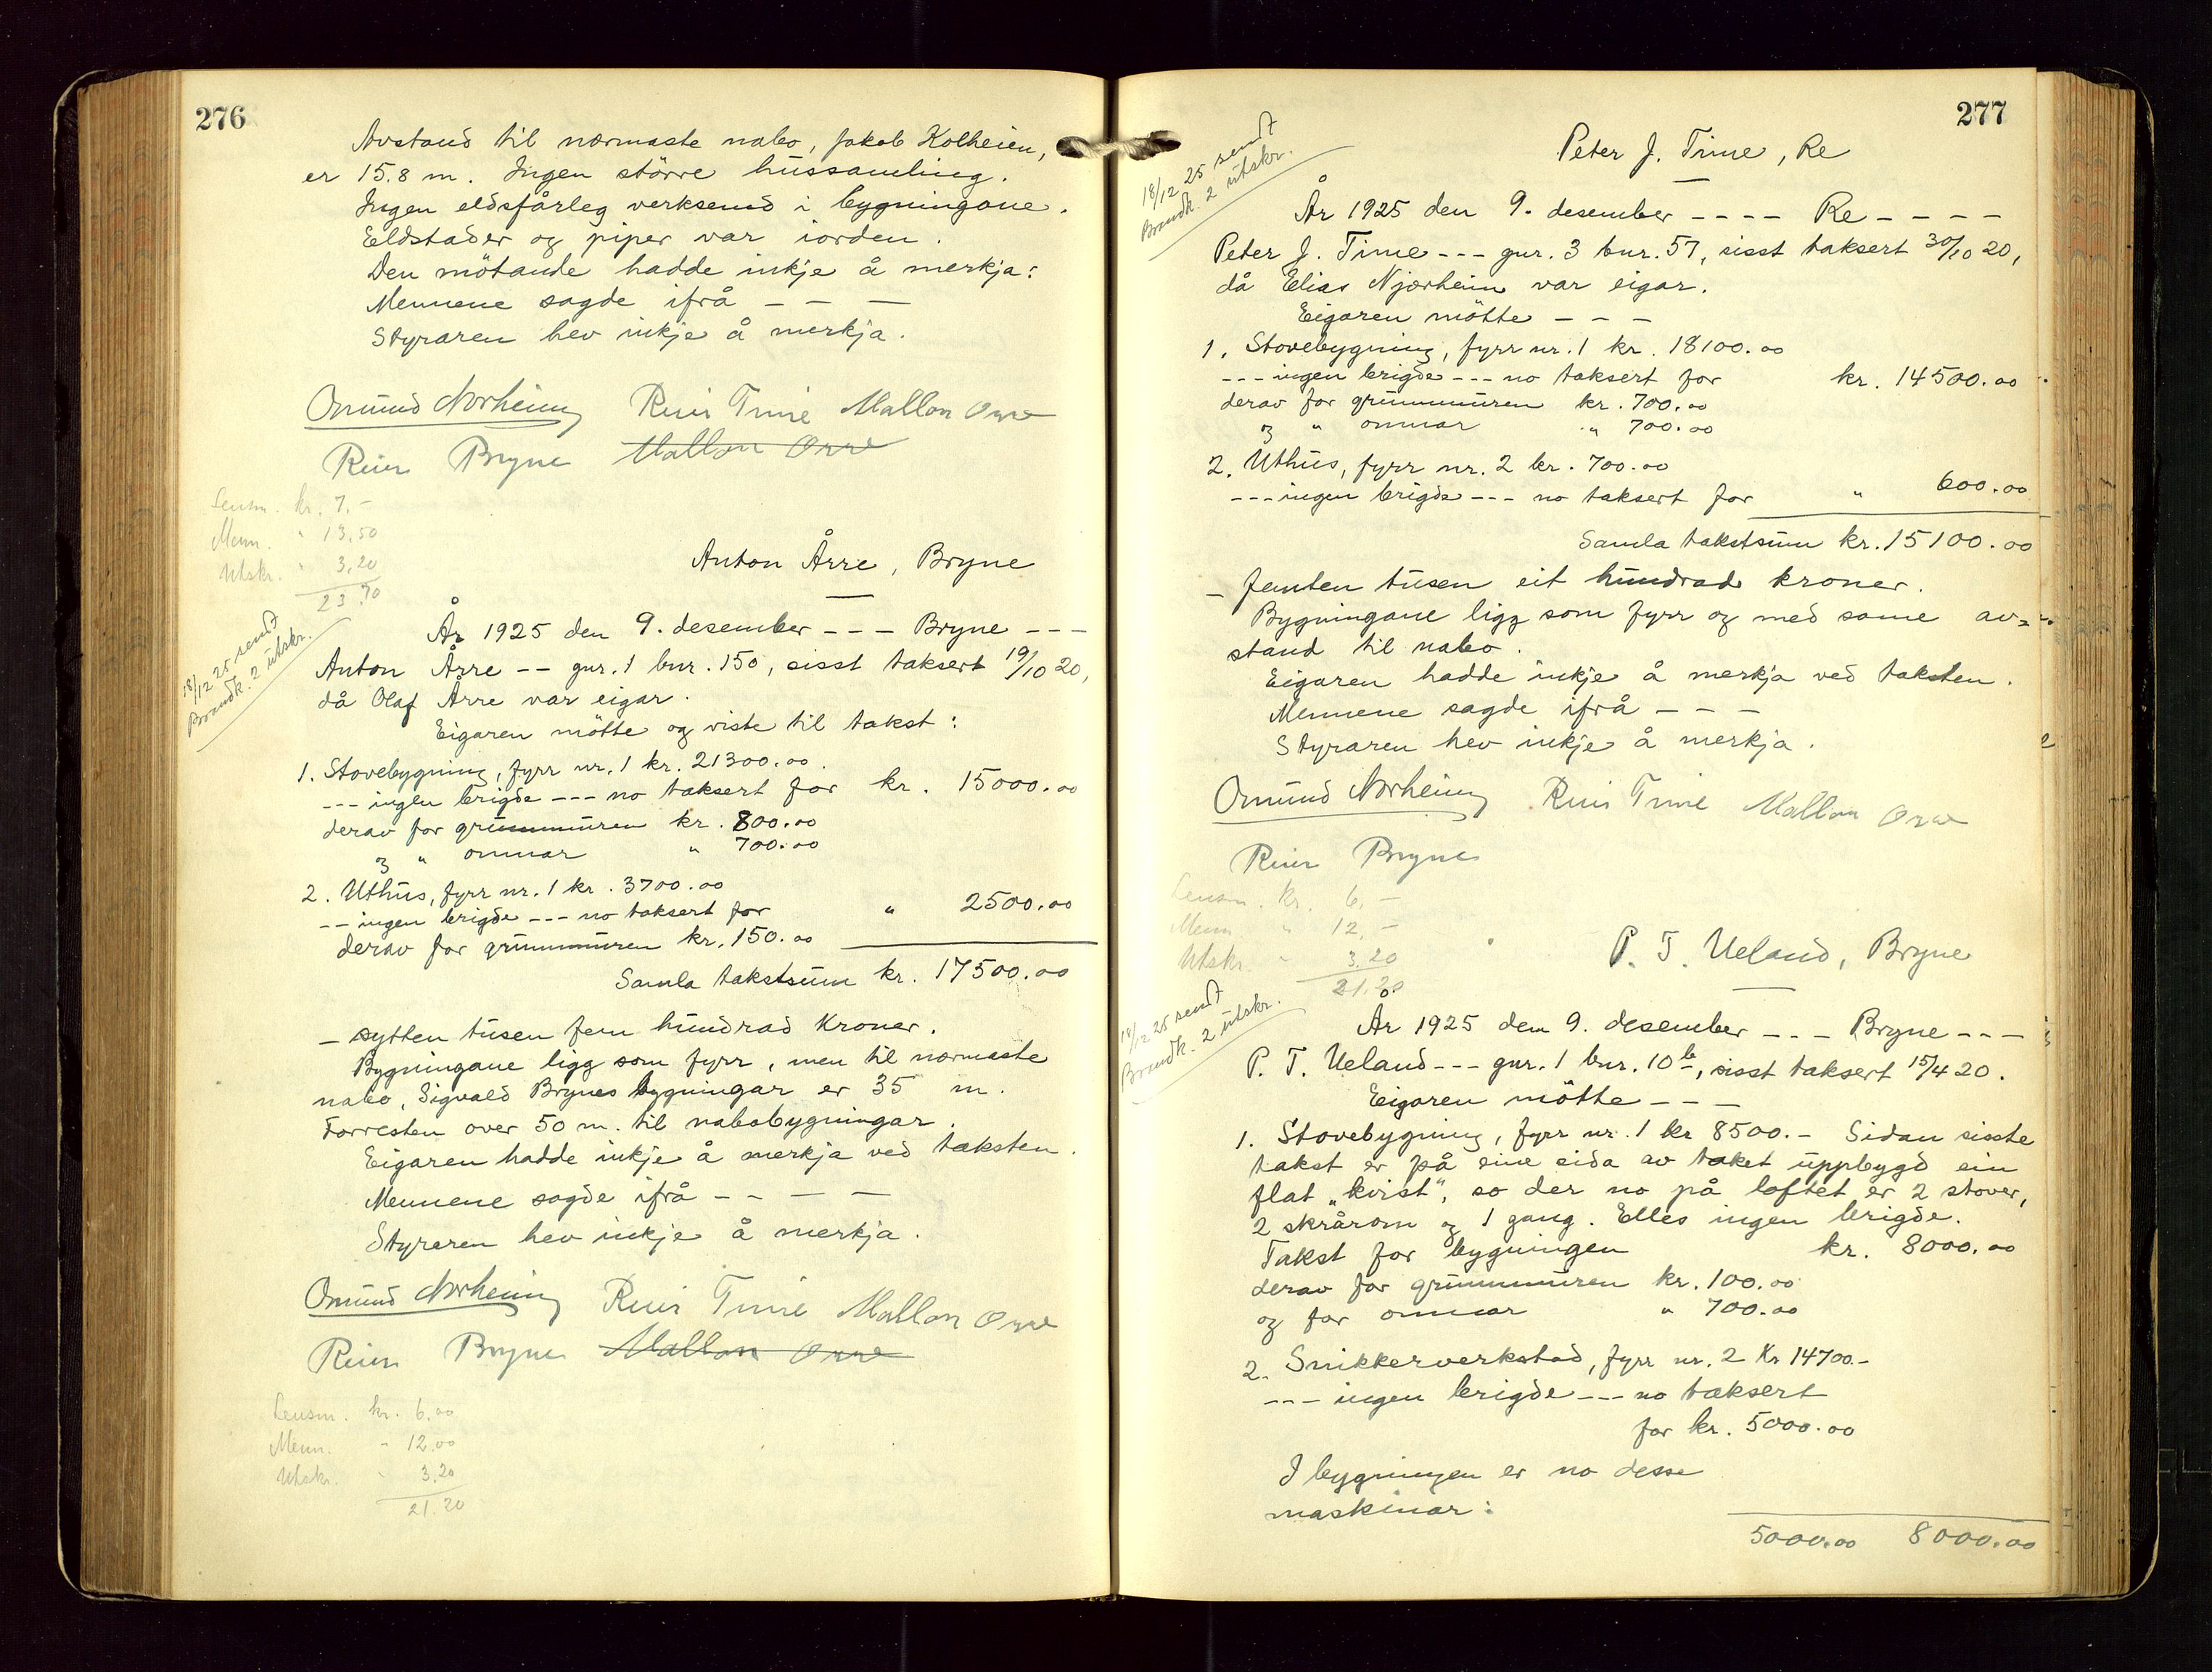 276
Avstand til nærmaste nabo, Jakob Kolheien,
er 15.8 m. Ingen större hussamling.
Ingen eldsfårleg verksemd i bygningane.
Eldstader og piper var iorden.
Den mötande hadde inkje å merkja:
Mennene sagde ifrå - - -
Styraren hev inkje å merkja.
Omund Norheim Reier Time Mallon Orre
Reier Bryne Mallon Orre
Lensm. kr. 7.-
Menn. " 13,50
Utskr. " 3,20
23.70
Anton Årre, Bryne
18/12 25 sendt
Brandk. 2 utskr.
År 1925 den 9. desember - - - Bryne - - -
Anton Årre -- gnr. 1 bnr. 150, sisst taksert 19/10 20,
då Olaf Årre var eigar.
Eigaren mötte og viste til takst:
1. Stovebygning, fyrr nr. 1 kr. 21300.00.
--- ingen brigde --- no taksert for kr. 15000.00
derav for grunnmuren kr. 800.00
og " omnar " 700.00
2. Uthus, fyrr nr. 1 kr. 3700.00
-- ingen brigde --- no taksert for " 2500.00
derav for grunnmuren kr. 150.00
Samla takstsum kr. 17500.00
- sytten tusen fem hundrad kroner.
Bygningane ligg som fyrr, men til nærmaste
nabo, Sigvald Brynes bygningar er 35 m.
Forresten over 50 m. til nabobygningar.
Eigaren hadde inkje å merkja ved taksten.
Mennene sagde ifrå - - - -
Styraren hev inkje å merkja.
Omund Norheim Reier Time Mallon Orre
Reier Bryne Mallon Orre
Lensm. kr. 6.00
Menn. " 12.00
Utskr. " 3.20
21.20
277
18/12 25 sendt
Brandk. 2 utskr.
Peter J. Time, Re
År 1925 den 9. desember - - - - Re - - - -
Peter J. Time --- gnr. 3 bnr. 57, sisst taksert 30/10 20,
då Elias Njærheim var eigar.
Eigaren mötte - - -
1. Stovebygning, fyrr nr. 1 kr. 18100.00
--- ingen brigde --- no taksert for kr. 14500.00
derav for grunnmuren kr. 700.00
og " omnar " 700.00
2. Uthus, fyrr nr. 2 kr. 700.00
--- ingen brigde --- no taksert for " 600.00
Samla takstsum kr. 15100.00
- femten tusen eit hundrad kroner.
Bygningane ligg som fyrr og med same av=
stand til nabo.
Eigaren hadde inkje å merkja ved taksten.
Mennene sagde ifrå - - -
Styraren hev inkje å merkja.
Omund Norheim Reier Time Mallon Orre
Reier Bryne
Lensm. kr. 6,-
Menn " 12,-
Utskr. " 3,20
21.20
P. T. Ueland, Bryne
18/12 25 sendt
Brandk. 2 utskr.
År 1925 den 9. desember - - - Bryne - - -
P. T. Ueland --- gnr. 1 bnr. 10 b, sisst taksert 15/4 20.
Eigaren mötte - - -
1. Stovebygning, fyrr nr. 1 kr 8500.- Sidan sisste
takst er på eine sida av taket uppbygd ein
flat „kvist", so der no på loftet er 2 stover,
2 skrårom og 1 gang. Elles ingen brigde.
Takst for bygningen kr. 8000.00
derav for grunnmuren kr. 100.00
og for omnar " 700.00
2. Snikkerverkstad, fyrr nr. 2 Kr 14700.-
--- ingen brigde --- no taksert
for kr. 5000.00
I bygningen er no desse
maskinar:
5000.00 8000.00